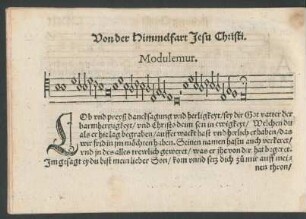 Von der Himmelfart Jesu Christi.
Modulemur.
LOb vnd preyß dancksagung vnd herligkeyt/ sey dir Got vatter der
barmhertzigkeyt/ vnd Christo deim sun in ewigkeyt/ Welchen du
als er hie lag begraben/ auffer weckt hast vnd hoch erhaben/ das
wir frid in jm möchten haben. Seinen namen hastu auch verkleret/
vnd jn des alles trewlich geweret/ was er ihe von dir hat begeret.
Im gesagt ey du bist mein lieber Son/ kom vnnd setz dich zů mir auff mei-
nen thron/